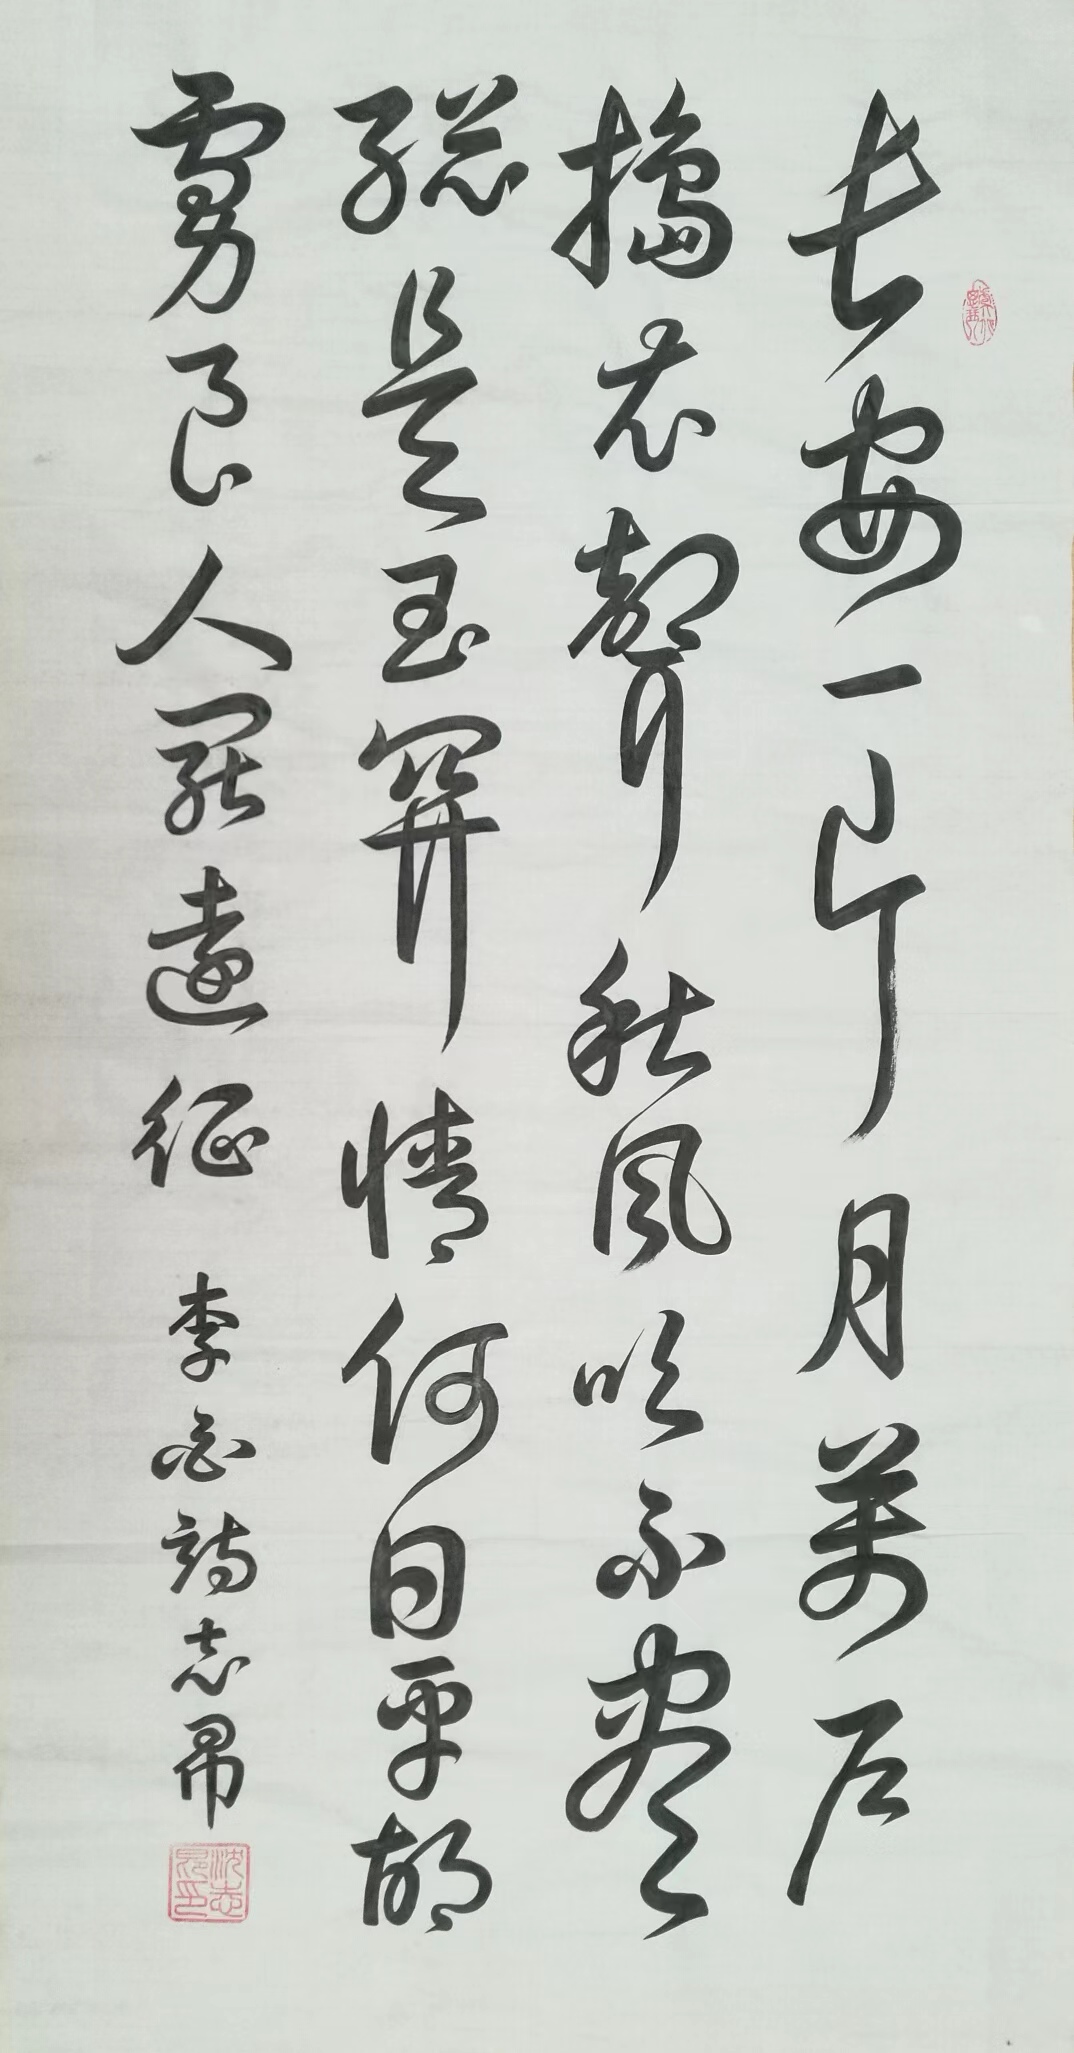 長安一片月萬戶
搗衣聲秋風吹不盡
總是玉關情何日平胡
虜良人罷遠征
李白詩志昂
沈志昂印